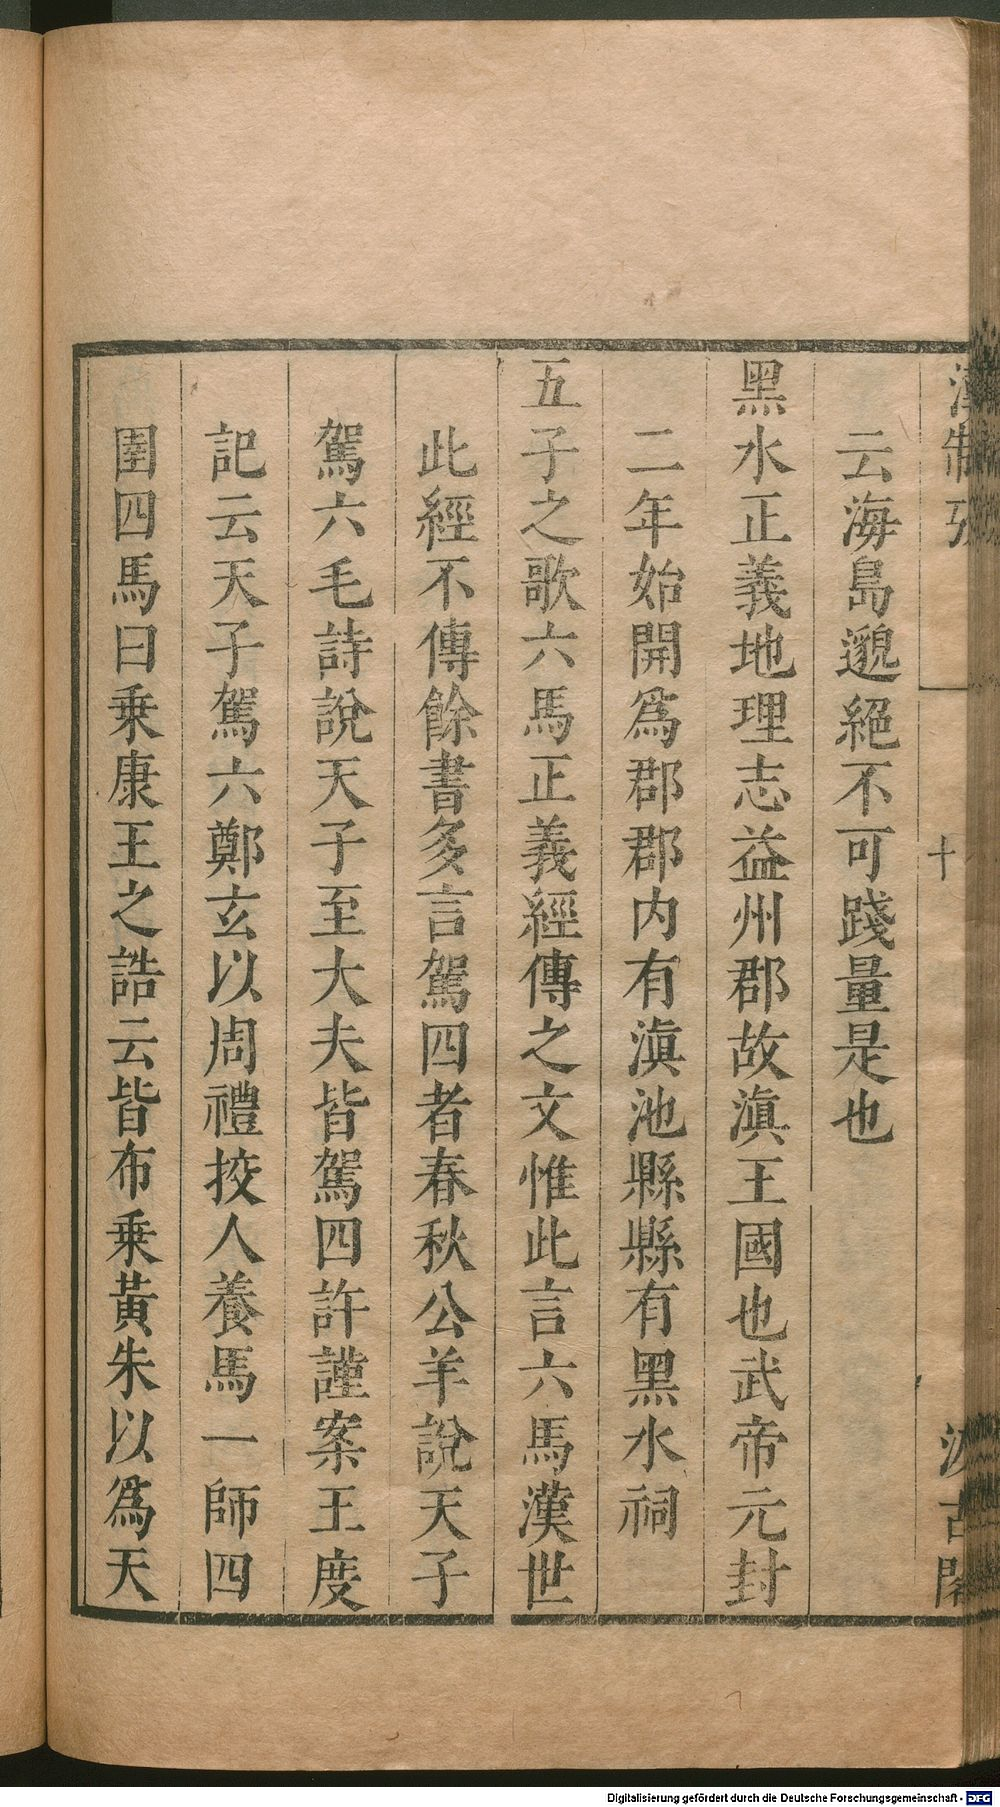 漢制攷
十
汲古閣
云海島邈絕不可踐量是也
黑水正義地理志益州郡故滇王國也武帝元封
二年始開爲郡郡內有滇池縣縣有黑水祠
五子之歌六馬正義經傳之文惟此言六馬漢世
此經不傳餘書多言駕四者春秋公羊說天子
駕六毛詩說天子至大夫皆駕四許謹案王度
記云天子駕六鄭玄以周禮挍人養馬一師四
圉四馬曰乘康王之誥云皆布乘黃朱以爲天
Digitalisierung gefördert durch die Deutsche Forschungsgemeinschaft - DFG